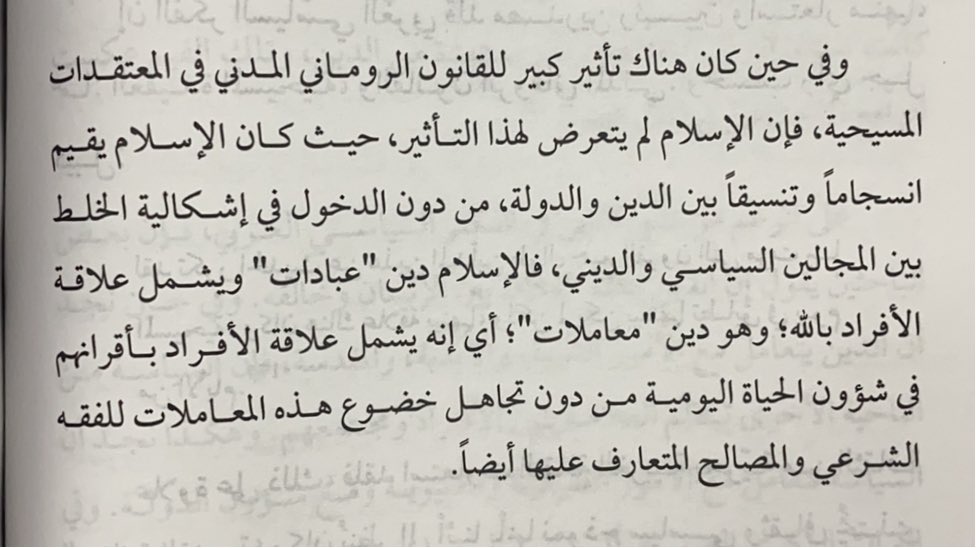 وفي حين كان هناك تأثير كبير للقانون الروماني المدني في المعتقدات
المسيحية، فإن الإسلام لم يتعرض لهذا التأثير، حيث كان الإسلام يقيم
انسجاماً وتنسيقاً بين الدين والدولة، من دون الدخول في إشكالية الخلط
بين المجالين السياسي والديني، فالإسلام دين "عبادات" ويشمل علاقة
الأفراد بالله؛ وهو دين "معاملات"؛ أي إنه يشمل علاقة الأفراد بأقرانهم
في شؤون الحياة اليومية من دون تجاهل خضوع هذه المعاملات للفقه
الشرعي والمصالح المتعارف عليها أيضاً.